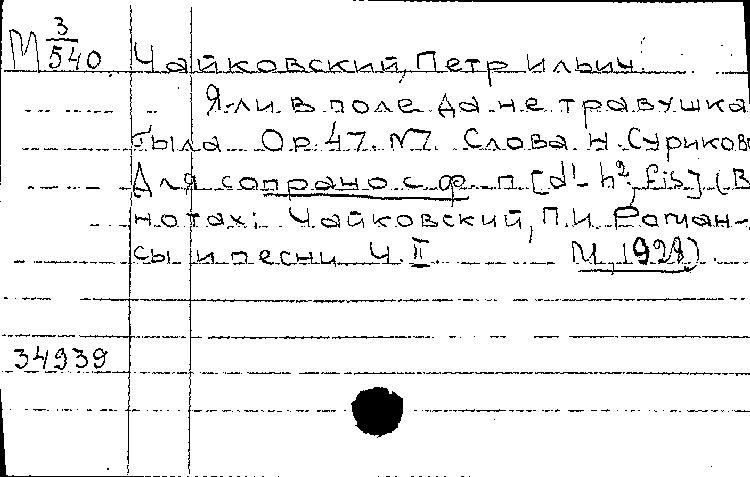 М 3/540 Чайковский, Петр Ильич.
Я ли в поле да не травушка
была Op. 47. N7. Слова Н. Суриков
Для сопрано с ф.-п. [d¹-h², fis] (В
нотах: Чайковский, П.И. Роман-
сы и песни Ч. II. М., 1928)
34939